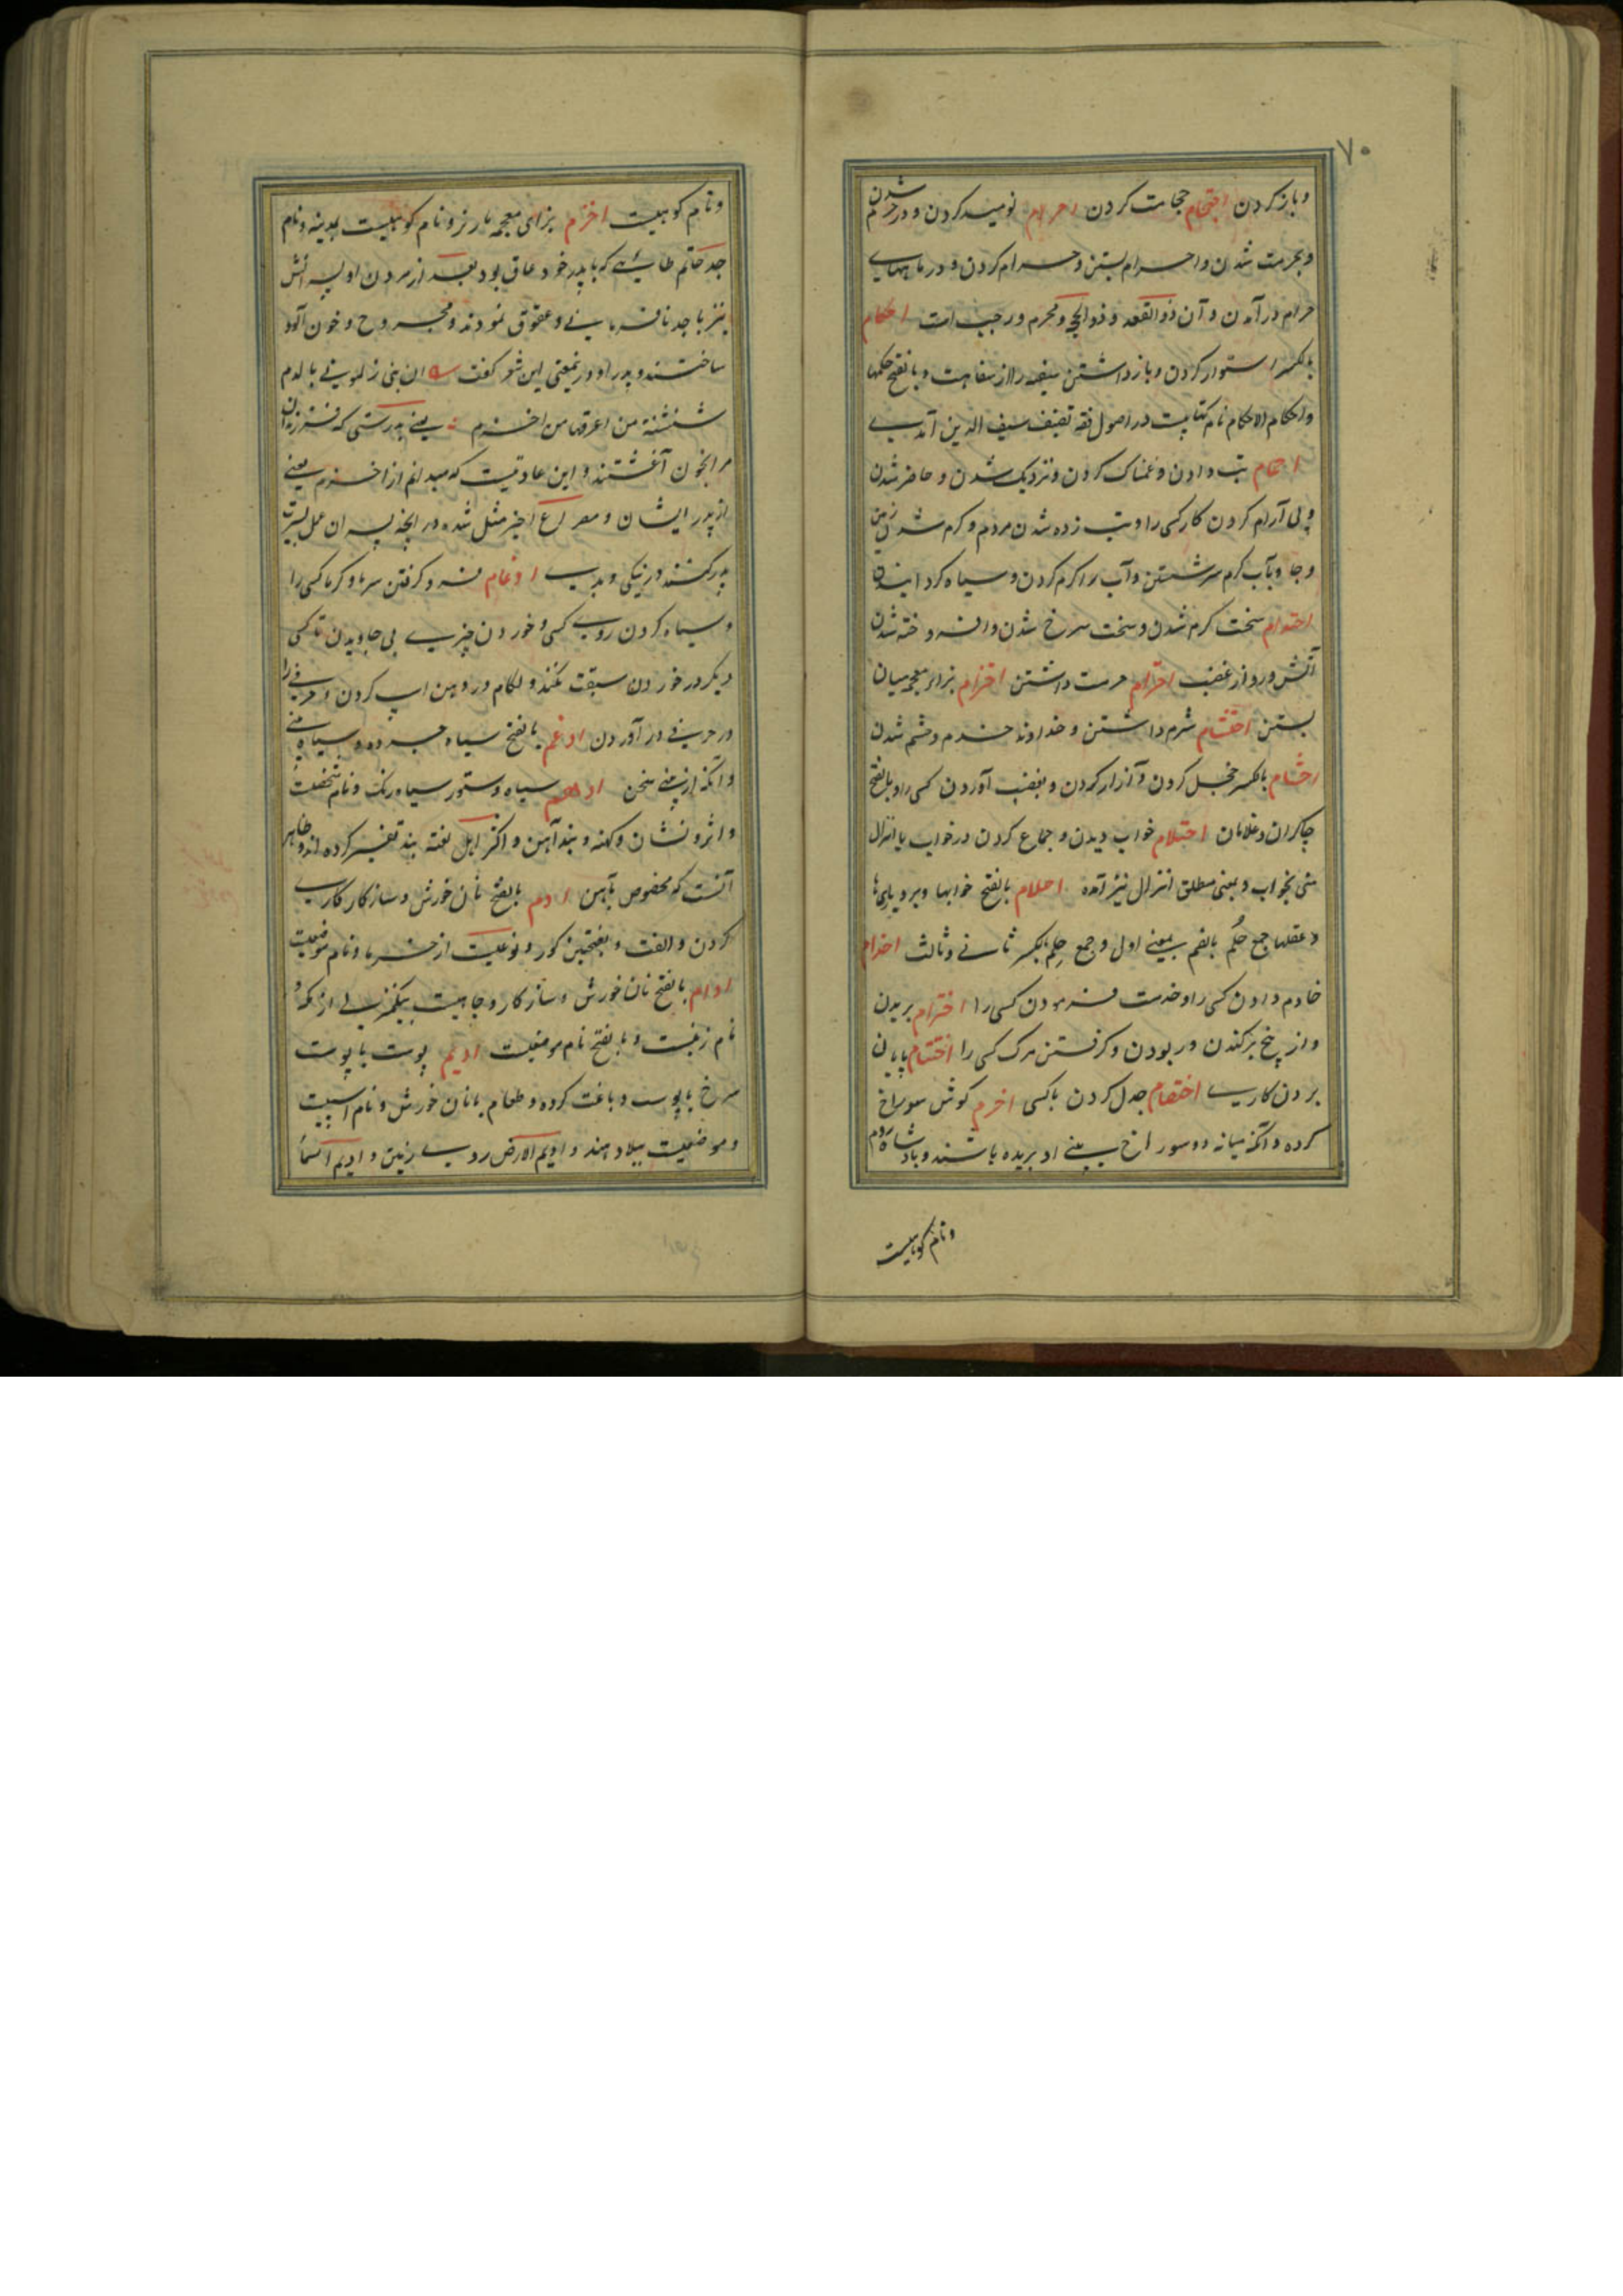 ۷۰
و باز کردن احتجام حجامت کردن احرام نومید کردن و در حرم شدن
و بحرمت شدن و احرام بستن و حرام کردن و در ماههای
حرام در آمدن و آن ذوالقعد و ذوالحجه و محرم و رجب است احکام
بالکسر استوار کردن و باز داشتن سفیه را از سفاهت و بالفتح حکمها
و احکام الاحکام نام کتابیست در اصول فقه تصنیف سیف الدین آمدی
احمام تب دادن و غمناک کردن و نزدیک شدن و حاضر شدن
و بی آرام کردن کار کسی را و تب زده شدن مردم و گرم شدن زمین
و جا و بآب گرم سر شستن و آب را گرم کردن و سیاه گردانیدن
احتدام سخت گرم شدن و سخت سرخ شدن و افروخته شدن
آتش و رو از غضب احترام حرمت داشتن احتزام بزای معجمه میان
بستن احتشام شرم داشتن و خداوند خدم و حشم شدن
احشام بالکسر خجل کردن و آزار کردن و بغضب آوردن کسی را و بالفتح
چاکران و غلامان احتلام خواب دیدن و جماع کردن در خواب با انزال
منی بخواب و بمعنی مطلق انزال نیز آمده احلام بالفتح خوابها و بردباریها
و عقلها جمع حُلم بالضم بمعنی اول و جمع حِلم بکسر ثانی و ثالث اخدام
خادم دادن کسی را و خدمت فرمودن کسی را اخترام بریدن
و از بیخ برکندن و ربودن و گرفتن مرگ کسی را اختتام بپایان
بردن کاری اختصام جدل کردن با کسی اخرم گوش سوراخ
کرده و آنکه میانه دو سوراخ بینی او بریده باشند و پادشاه روم
و نام کوهیست
و نام کوهیست اخزم بزای معجمه مار نر و نام کوهیست بمدینه و نام
جد حاتم طائی که با پدر خود عاق بود بعد از مردن او پسرانش
نیز با جد نافرمانی و عقوق نمودند و مجروح و خون آلود
ساختند و پدر او درینمعنی این شعر گفت ان بنی زملونی بالدم
شنشنة من اعرفها من اخزم یعنی بدرستی که فرزندان
مرا بخون آغشتند و این عادتیست که میدانم از اخزم یعنی
از پدر ایشان و مصراع اخیر مثل شده در آنچه پسران عمل بسیرت
پدر کنند در نیکی و بدی ادغام فرو گرفتن سرما و گرما کسی را
و سیاه کردن روی کسی و خوردن چیزی بی جاویدن تا کسی
دیگر در خوردن سبقت نکند و لگام در دهن اسپ کردن و حرفی را
در حرفی در آوردن ادغم بالفتح سیاه چرده و سیاه بینی
و آنکه از بینی سخن ادهم سیاه و ستور سیاه رنگ و نام شخصیست
و اثر و نشان و کهنه و بند آهن و اکثر اهل لغة بند تفسیر کرده اند و ظاهر
آنست که مخصوص بآهن ادم بالفتح نان خورش و سازکاری
کردن و الفت و بفتحتین گور و نوعیست از خرما و نام موضعیست
ادام بالفتح نان خورش و سازکار و جاهیست بیکمنزلی از مکه و
نام زنیست و بالفتح نام موضعیست ادیم پوست یا پوست
سرخ یا پوست دباغت کرده و طعام با نان خورش و نام اسپیست
و موضعیست ببلاد هند و ادیم الارض روی زمین و ادیم السماء